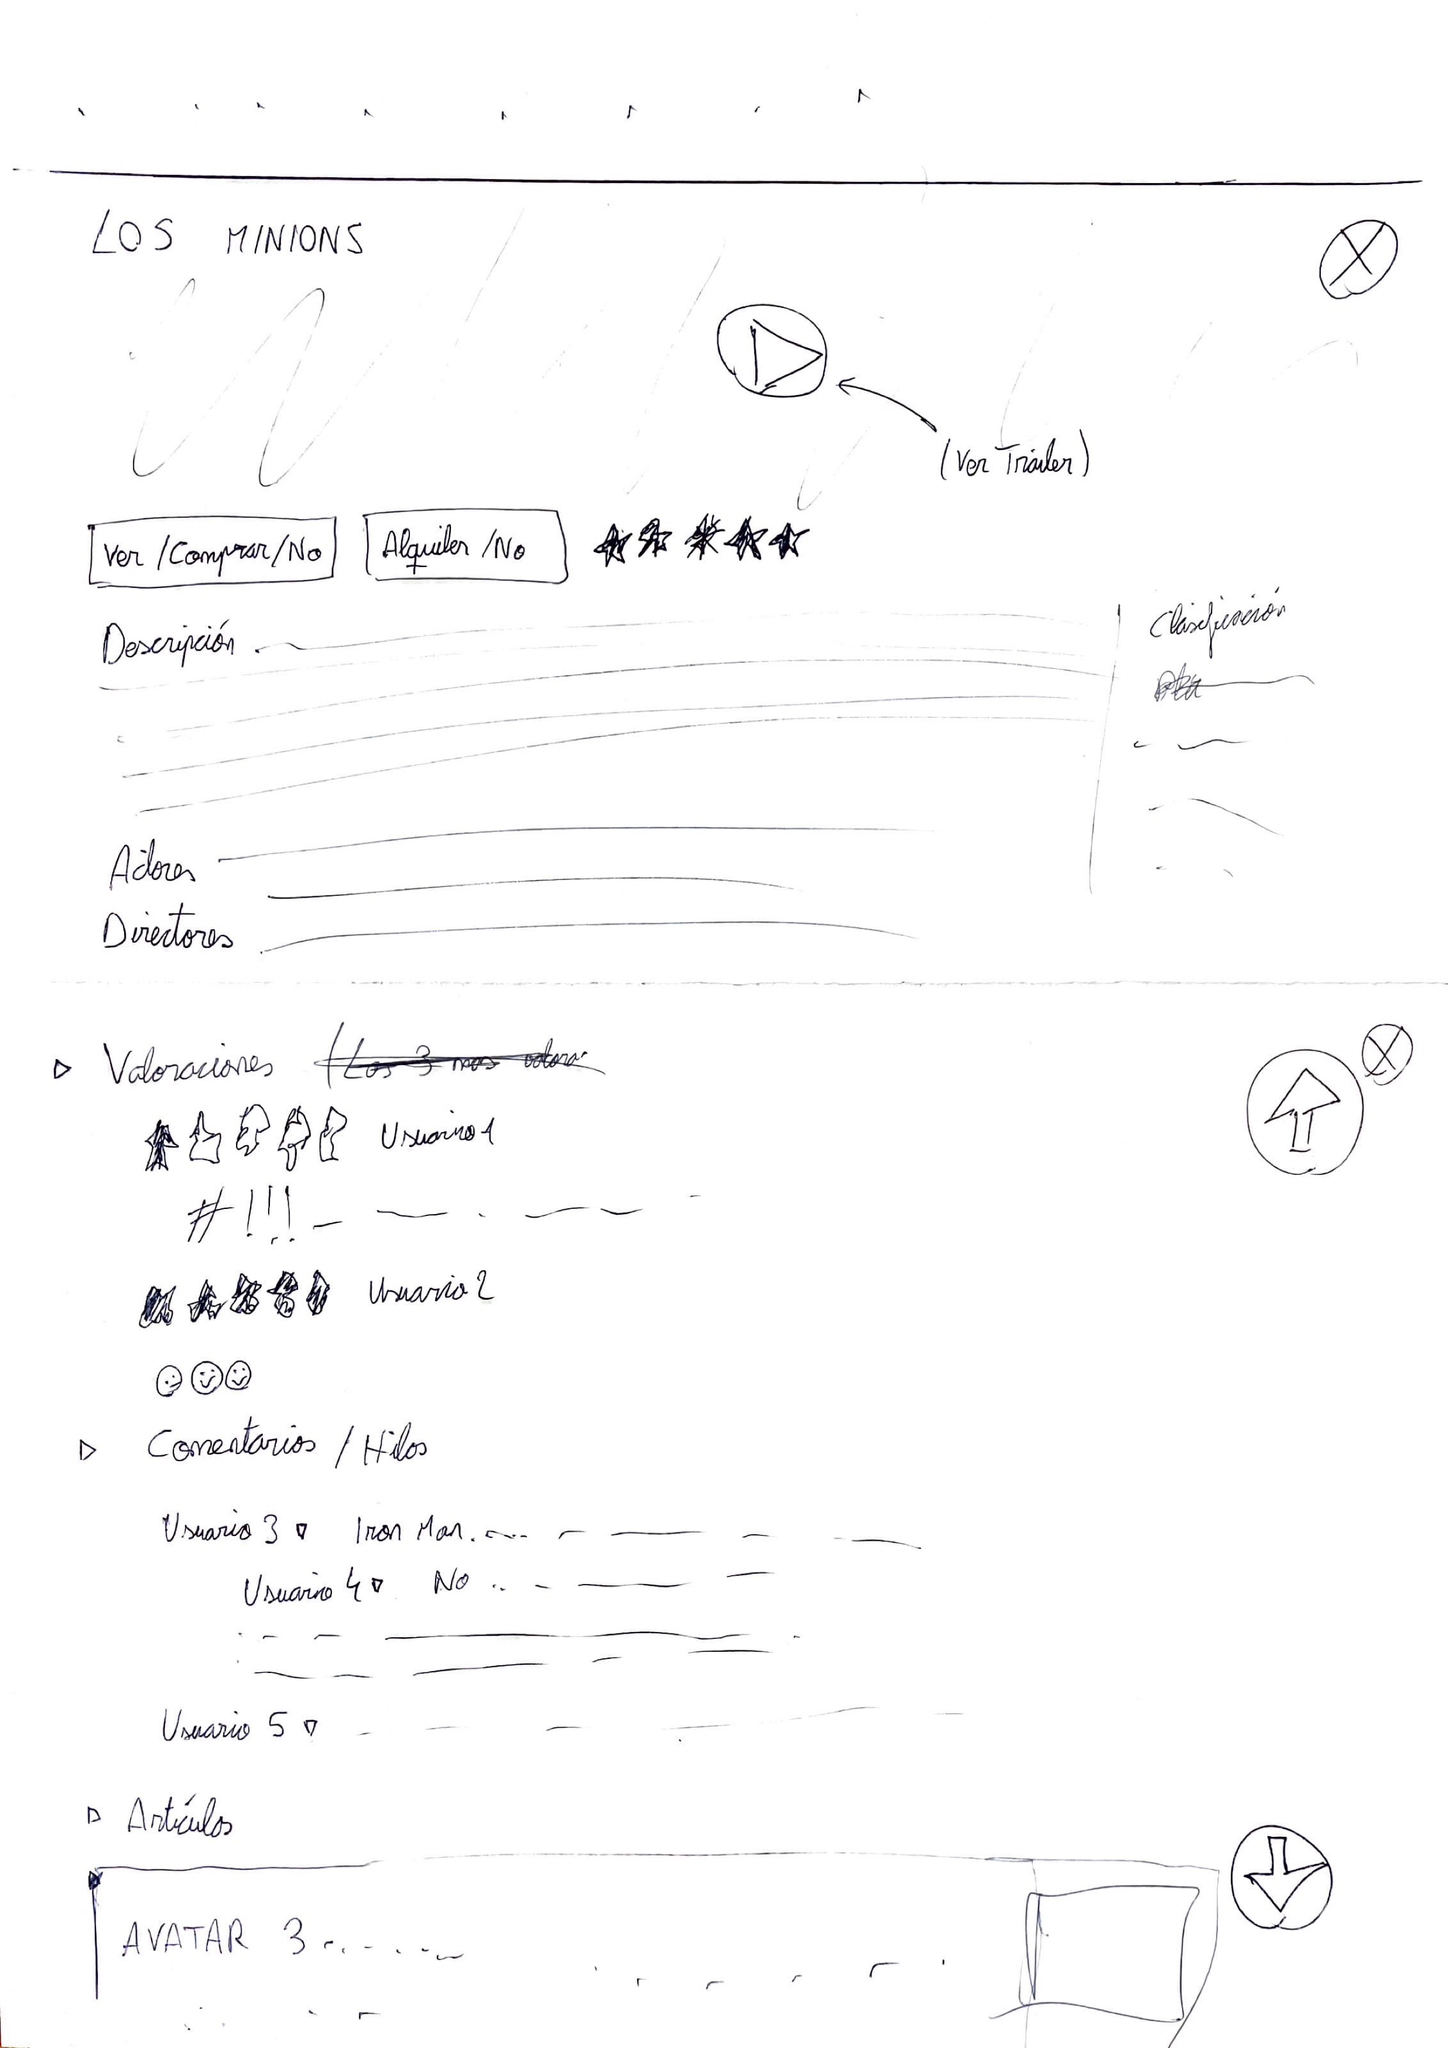 LOS MINIONS
(Ver Tráiler)
Ver /Comprar/No
Alquiler /No
Descripción
Clasificación
Actores
Directores
Valoraciones (Los 3 mas valora
Usuario 1
#!!!
Usuario 2
Comentarios / Hilos
Usuario 3 Iron Man.
Usuario 4 No
Usuario 5
Artículos
AVATAR 3